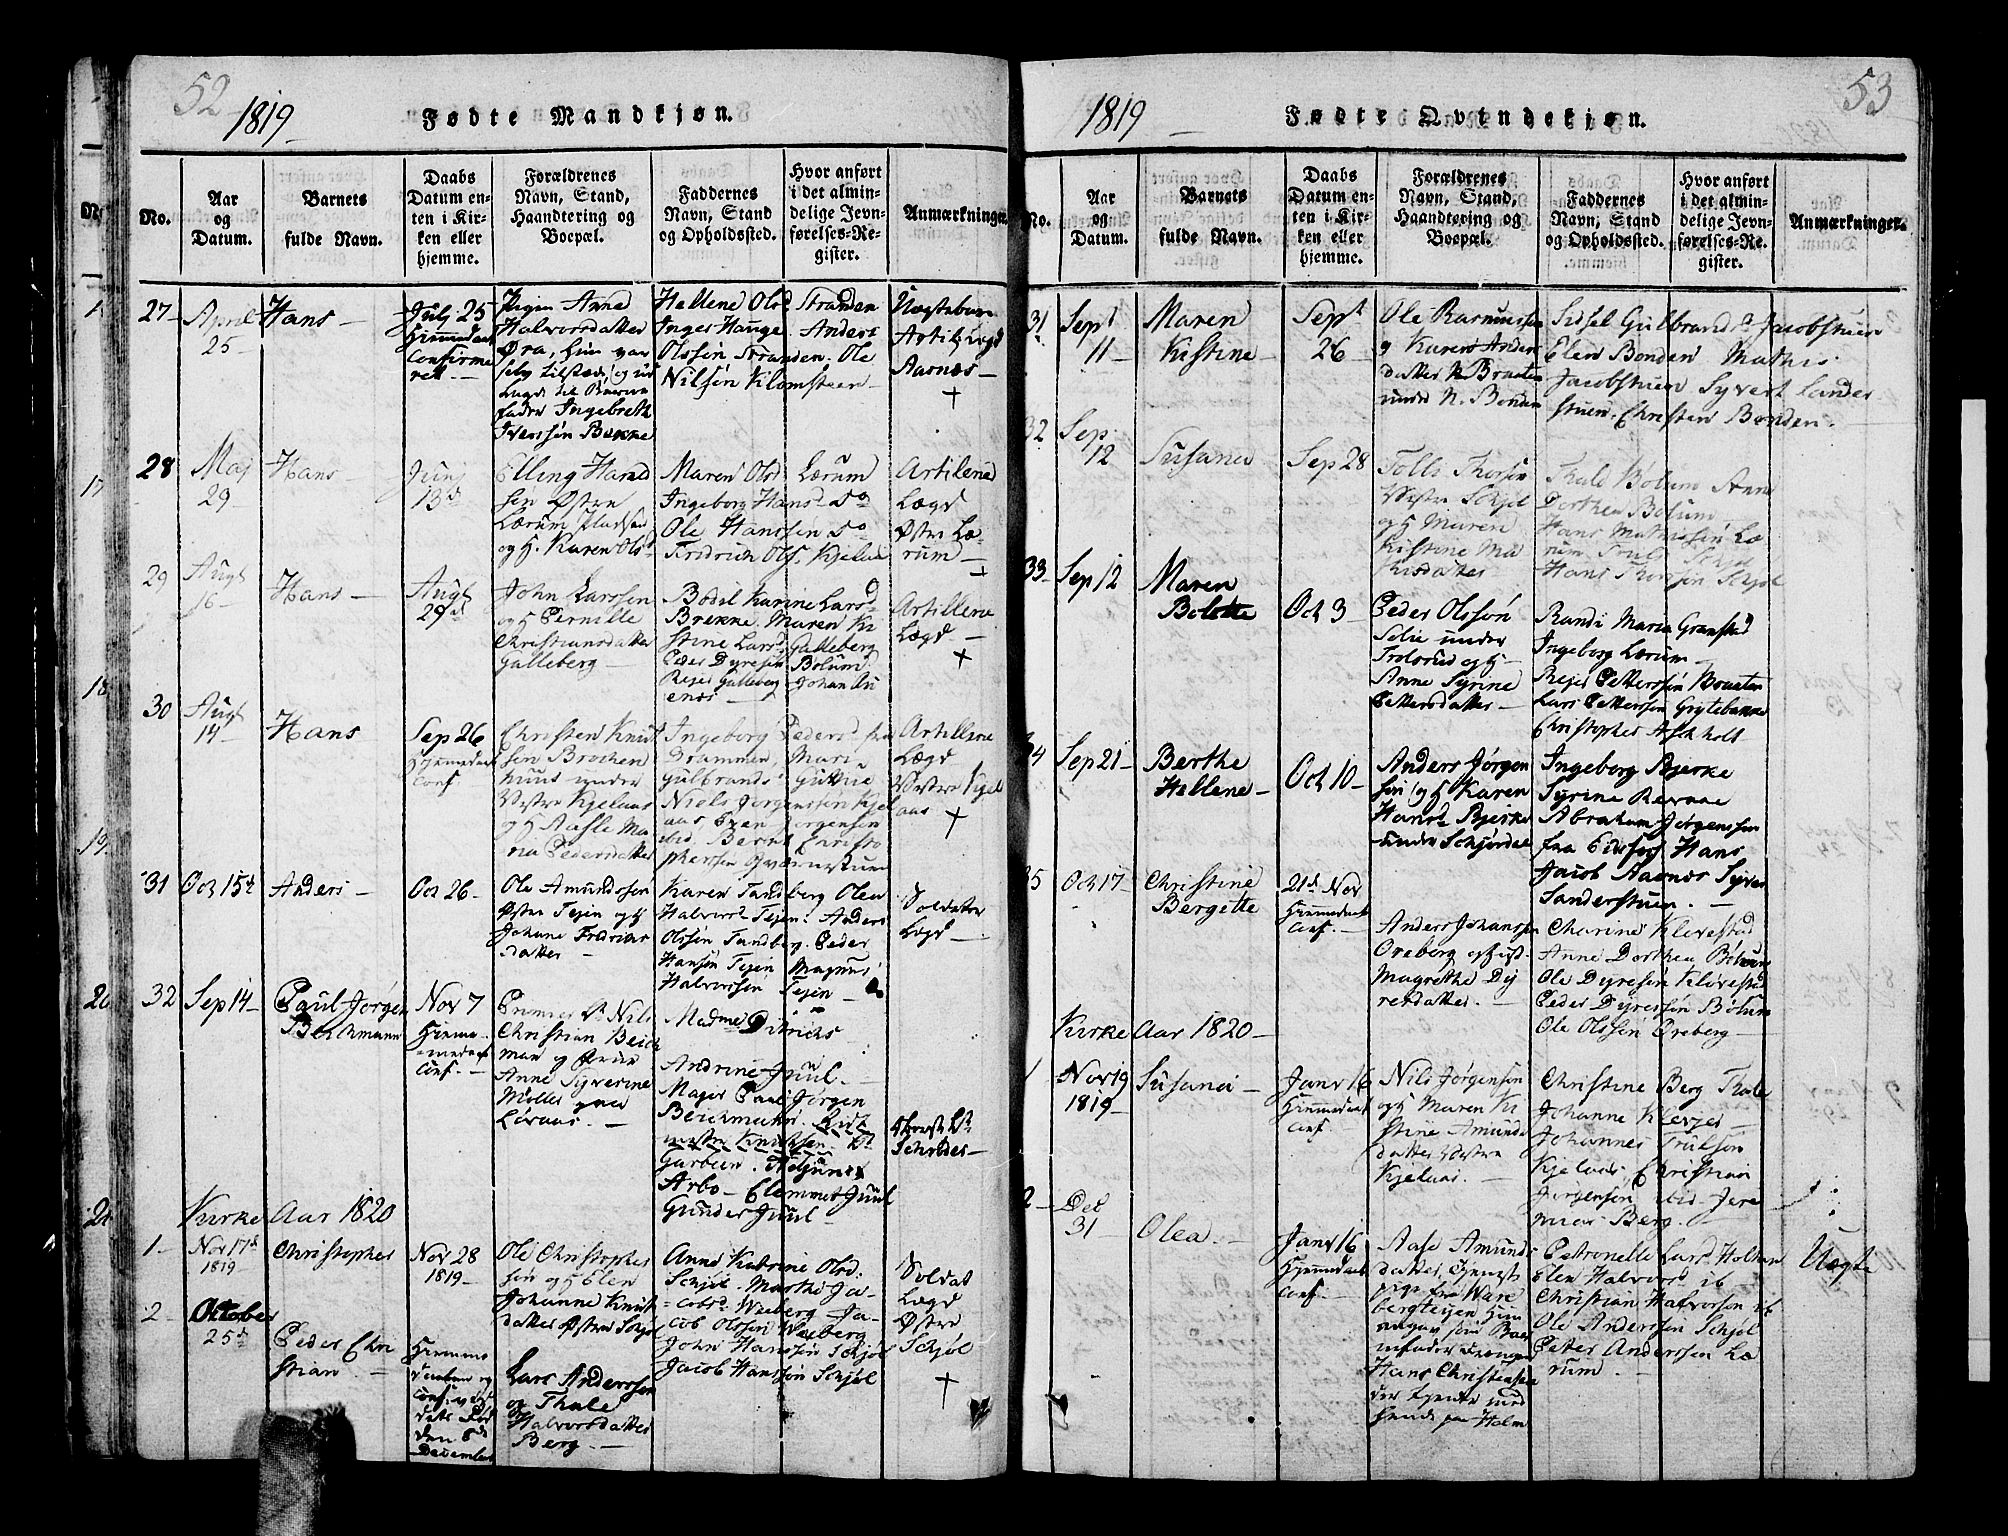 52
1819
Fødte Mandkjøn.
No.
Aar
og
Datum.
Barnets
fulde Navn.
Daabs
Datum en-
ten i Kir-
ken eller
hjemme.
Forældrenes
Navn, Stand,
Haandtering og
Boepæl.
Faddernes
Navn, Stand
og Opholdssted.
Hvor anført
i det almin-
delige Jevn-
førelses-Re-
gister.
Anmærkninger
27
April
25
Hans
July 25
Hiemmedøbt
Confirme
ret
Pigen Anne
Halvorsdatter
Øra,
Fader Ingebreth
Iverssøn Bakke
Hellene Olsd Stranden
Inger Hauge Anders
Olssøn Stranden. Ole
Nilsøn Klomsteen
Uægtebaarn
Artil. Lægd
Aarnæs
+
28
Maj
29
Hans
Junj
13d
Elling Hans
sen Østre
Lærum
og H. Karen Olsd
Maren Olsd Lærum
Ingeborg Hansd do
Ole Hanssen do
Fredrich Ols. Kjelaas
Artilerie
Lægd
Østre Læ
rum
+
29
Augt
16
Hans
Augt
29d
John Larssen
og H Pernille
Christiansdatter
Galleberg
Bodil Karine Larsd
Brekke. Maren Ki
stine Larsd Galleberg
Peder Dyresøn Bolum
Rejer Galleberg Johan
Artillerie
Lægd
+
30
Augt
14
Hans
Sep 26
Hjemmedøbt
Conf
Christen Knut
sen Brochen
huus under
Vestre Kjelaas
og H Aasle Ma
ria Pedersdatter
Ingeborg Pedersd fra
Drammen, Mari
Gulbrandsd
Niels Jørgenssøn Kjel
aas, Even Jørgensøn
ibid, Bernt Christo
phersen
Artillerie
Lægd
Vestre Kjel
aas
+
31
Oct 15d
Anders
Oct 26
Ole Amundssen
Østre Tejen og H
Johane Fredrics
datter
Karen Tandberg Olea
Halvorsd Tejen. Anders
Olssøn Tandberg. Peder
Hansøn Tejen Magnus
Halvorssøn Tejen
Soldater
Lægd
32
Sep 14
Paul Jørgen
Beichmann
Nov 7
Conf.
Christian Beich
man og Frue
Anne Syverine
Møller
Madme Ditrichs
Andrine Juul
Major Paul Jørgen
Beichmann.
Garben.
Arbo Clemmet Juul
Gunder Juul
Kirke Aar 1820
1
Nov 17d
1819
Christopher
Nov 28
1819
Ole Christophers
søn og H Elen
Johanne Knuts
datter Østre Schjøl
Anne Katrine Olsd
Schjøl. Marthe Ja-
cobsd Weeberg Ja-
cob Olssøn Weeberg
John Hanssøn Schjøl
Jacob Hanssøn Schjøl
Soldat
Lægd
Østre
Schjøl
+
2
October
25d
Peder Chri
stian
Hiemme
den 8d
December
Lars Anderssøn
og Thale
Halvorsdatter
Berg
53
1819
Fødte Qvindekjøn.
No.
Aar
og
Datum.
Barnets
fulde Navn.
Daabs
Datum en-
ten i Kir-
ken eller
hjemme.
Forældrenes
Navn, Stand,
Haandtering og
Boepæl.
Faddernes
Navn, Stand
og Opholdssted.
Hvor anført
i det almin-
delige Jevn-
førelses-Re-
gister.
Anmærkninger.
31
Sept
11
Maren
Kistine
Sept
26
Ole Rasmussen
og Karen Anders
datter N Braaten
under N. Bonden
Sidsel Gulbrandsd Jacobstuen
Elen Bonden Mathis
Jacobstuen Syvert Sander
stuen. Christen Bonden.
32
Sep
12
Susana
Sep 28
Tolle Thorsøn
Vestre Schjøl
og H Maren
Kistine Ma
thisdatter
Thale Bolum Anne
Dorthea Bolum
Hans Mathissøn Læ
rum Schjøl
Hans Thorsøn Schjøl
33
Sep 12
Maren
Bolette
Oct 3
Peder Olssøn
Solie under
Trolsrud og H
Anne Syrine
Pettersdatter
Randi Maria Gransted
Ingeborg Lærum
Rejer Petterssøn Braaten
Lars Petterssøn Grytebakke
Christopher Askholt
34
Sep 21
Berthe
Hellene
Oct 10
Anders Jørgen
søn og H Karen
Hansd Bjerke
under Schjørdal
Ingeborg Bjerke
Syrine Revaae
Abraham Jørgenssen
fra Eidsfos Hans
Jacob Aarnæs Syver
Sanderstuen.
35
Oct 17
Christine
Bergitte
21d Nov
Hiemmedøbt
Conf.
Anders Johanssøn
Oreberg og Hust
Magrethe Dy
resdatter.
Charine Klevestad
Anne Dorthea Bolum
Ole Dyresøn Kløvestad
Peder Dyressøn Bolum
Ole Olssøn Oreberg
Kirke Aar 1820
1
Nov 19
1819
Susana
Janv 16
Hiemmedøbt
Conf.
Nils Jørgensøn
og H Maren Ki
stine Amunds
datter Vestre
Kjelaas
Christine Berg Thale
Johanne Klerjes
Johannes Trulsøn
Kjelaas Christian
Jørgensøn ibid Jere
mias Berg.
2
Dec
31
Olea
Janv 16
Hjemmedøbt
Conf.
Aase Amunds
datter, Tjeneste
pige fra Ware
bergtejen
Hans Christensen
der tjente med
hende paa Holm
Petronelle Larsd Holtan
Elen Halvorsd ib
Christian Halvorsøn ib
Ole Anderssøn Schjøl
Peter Anderssen Læ
rum.
Uægte